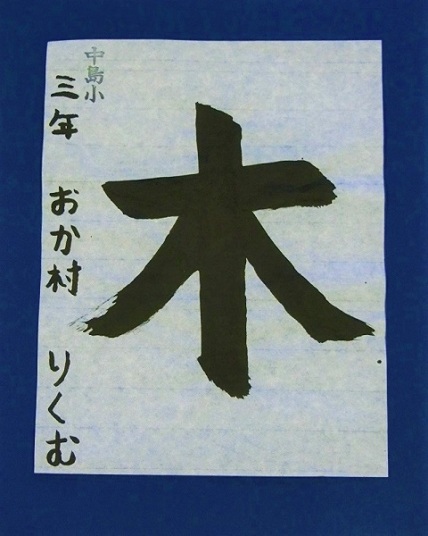 木
中島小
三年 おか村 りくむ